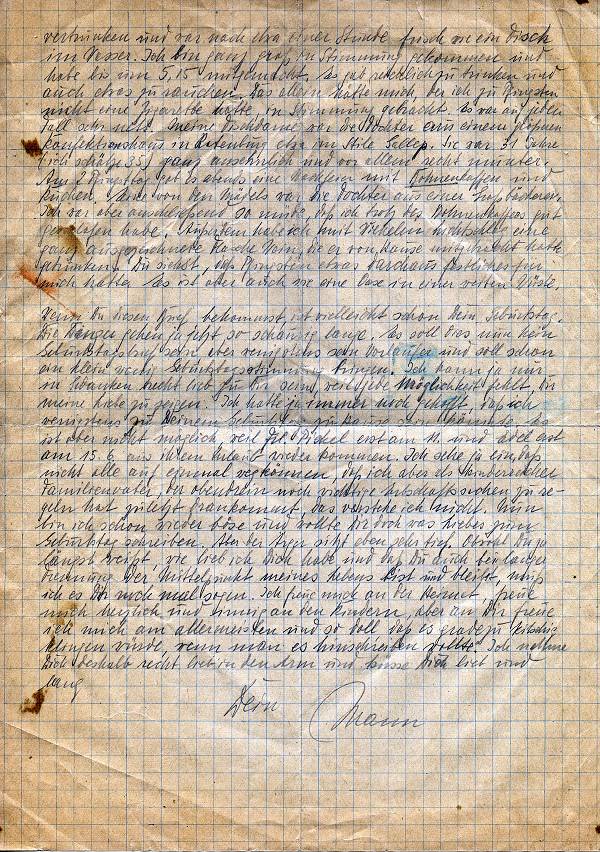 vertrunken und war nach etwa einer Stunde frisch wie ein Fisch
im Wasser. Ich bin ganz groß in Stimmung gekommen und
habe bis um 5,15 mitgemacht. Es gab reichlich zu trinken und
auch etwas zu rauchen. Das allein hätte mich, der ich zu Pfingsten
nicht eine Zigarette hatte, in Stimmung gebracht. Es war auf jeden
Fall sehr nett. Meine Tischdame war die Tochter aus einem größeren
Konfektionshaus in etwa im Stile Sie war 31 Jahre
(ich schätze 35) ganz ansehnlich und vor allem recht munter.
Am 2. Pfingsttag gab es abends eine mit Bohnenkaffee und
Kuchen. von den Mädels war die Tochter aus einer
Ich war aber anschließend so müde, daß ich trotz des Bohnenkaffees gut
geschlafen habe. Außerdem habe ich mit Wilhelm eine
ganz ausgezeichnete Flasche Wein, die er von Hause mitgebracht hatte
getrunken. Du siehst, daß Pfingsten etwas durchaus festliches für
mich hatte. Es ist aber auch wie eine Oase in einer weiten Wüste.
Wenn Du diesen Brief bekommst, ist vielleicht schon Dein Geburtstag.
Die gehen ja jetzt so schaurig lange. Es soll dies nun kein
Geburtstagsbrief sein, aber wenigstens sein Vorläufer und soll schon
ein klein wenig Geburtstagsstimmung bringen. Ich kann ja nur
in Gedanken recht lieb zu Dir sein, weil jede Möglichkeit fehlt, Dir
meine Liebe zu zeigen. Ich hatte ja immer noch gehofft, daß ich
wenigstens zu Deinem Geburtstag zu Hause sein könnte. Es
ist aber nicht möglich, weil erst am 11. und erst
am 15.6 aus ihrem Urlaub wieder kommen. Ich sehe ja ein, daß
nicht alle auf einmal wegkönnen, daß ich aber als kinderreicher
Familienvater, der obendrein noch wichtige Erbschaftssachen zu re-
geln hat zuletzt drankommt, das verstehe ich nicht. Nun
bin ich schon wieder böse und wollte Dir doch was liebes zum
Geburtstag schreiben. Aber der Ärger sitzt eben sehr tief. Obwohl Du ja
längst weißt, wie lieb ich Dich habe und daß Du auch bei langer
Trennung der Mittelpunkt meines Lebens bist und bleibst, muß
ich es Dir noch mal sagen. Ich freue mich an der Heimat, freue
mich herzlich und innig an den Kindern, aber an Dir freue
ich mich am allermeisten und so doll, daß es gradezu kitschig
klingen würde, wenn man es hinschreiben wollte. Ich nehme
Dich deshalb recht lieb in den Arm und küsse Dich lieb und
lang
Dein Mann